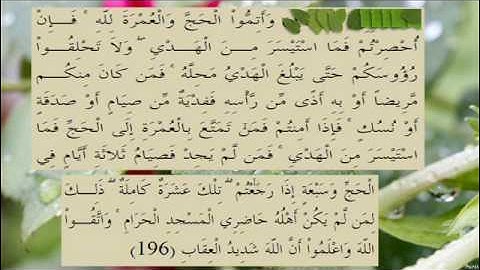 وَأَتِمُّواْ الْحَجَّ وَالْعُمْرَةَ لِلّهِ ۚ فَإِنْ
أُحْصِرْتُمْ فَمَا اسْتَيْسَرَ مِنَ الْهَدْيِ ۖ وَلاَ تَحْلِقُواْ
رُؤُوسَكُمْ حَتَّى يَبْلُغَ الْهَدْيُ مَحِلَّهُ ۚ فَمَن كَانَ مِنكُم
مَّرِيضاً أَوْ بِهِ أَذًى مِّن رَّأْسِهِ فَفِدْيَةٌ مِّن صِيَامٍ أَوْ صَدَقَةٍ
أَوْ نُسُكٍ ۚ فَإِذَا أَمِنتُمْ فَمَن تَمَتَّعَ بِالْعُمْرَةِ إِلَى الْحَجِّ فَمَا
اسْتَيْسَرَ مِنَ الْهَدْيِ ۚ فَمَن لَّمْ يَجِدْ فَصِيَامُ ثَلاثَةِ أَيَّامٍ فِي
الْحَجِّ وَسَبْعَةٍ إِذَا رَجَعْتُمْ ۗ تِلْكَ عَشَرَةٌ كَامِلَةٌ ۗ ذَلِكَ
لِمَن لَّمْ يَكُنْ أَهْلُهُ حَاضِرِي الْمَسْجِدِ الْحَرَامِ ۚ وَاتَّقُواْ
اللّهَ وَاعْلَمُواْ أَنَّ اللّهَ شَدِيدُ الْعِقَابِ (196)